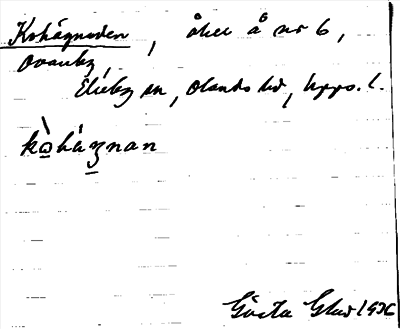 Kohägnaden, åker å nr 6,
Ovanby,
Ekeby sn, Olands hd, Upps. l.
kòhágnan
Gösta 1936